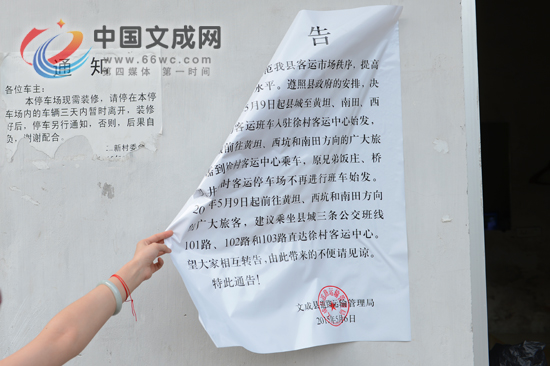 中国文成网
www.66wc.com
第四媒体 第一时间
通知
各位车主:
本停车场现需装修,请停在本停
车场内的车辆三天内暂时离开,装修
好后,停车另行通知,否则,后果自
负,谢谢配合。
新村委
告
范我县客运市场秩序,提高
水平。遵照县政府的安排,决
5月9日起县城至黄坦、南田、西
客运班车入驻徐村客运中心始发,
前往黄坦、西坑和南田方向的广大旅
到徐村客运中心乘车,原兄弟饭庄、桥
井 时客运停车场不再进行班车始发。
20 年5月9日起前往黄坦、西坑和南田方向
广大旅客,建议乘坐县城三条公交班线
101路、102路和103路直达徐村客运中心。
望大家相互转告,由此带来的不便请见谅。
特此通告!
文成县 运输管理局
6日